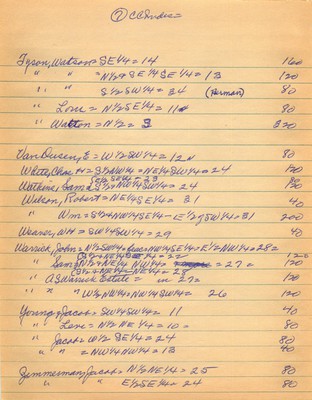 ⑦ CC Index =
Tyson, Watson = SE1/4 = 14 160
" " = N1/2 + SE1/4 SE1/4 = 13 120
" " S1/2 SW1/4 = 34 (Herman) 80
" Love = N1/2 SE1/4 = 11 80
" Watson = N1/2 = 3 320
Van Dusen, E = W1/2 SW1/4 = 12 80
White, Chas H = S1/2 NW1/4 = NE1/4 SW1/4 = 24 120
E1/2 SE1/4 = 23 80
Watkins, Sam = S1/2 + NW1/4 SW1/4 = 24 120
Wilson, Robert = NE1/4 SE1/4 = 31 40
" Wm = S1/2 + NW1/4 SE1/4 = E1/2 SW1/4 = 31 200
Weaver, WH = SW1/4 SW1/4 = 29 40
Warrick, John = N1/2 SW1/4 = SE1/4 = E1/2 NW1/4 = 28 =
= 22 120
" Sam = N1/2 + NE1/4 NW1/4 = 27 = 120
= 28
" AS Warrick Estate = in 27 = 120
" " = W1/2 NW1/4 + NW1/4 SW1/4 26 120
Young, Jacob = SW1/4 SW1/4 = 11 40
" Love = N1/2 NE1/4 = 10 = 80
" Jacob = W1/2 SE1/4 = 24 80
" " = NW1/4 NW1/4 = 13 40
Zimmerman, Jacob = N1/2 NE1/4 = 25 80
" " E1/2 SE1/4 = 24 80